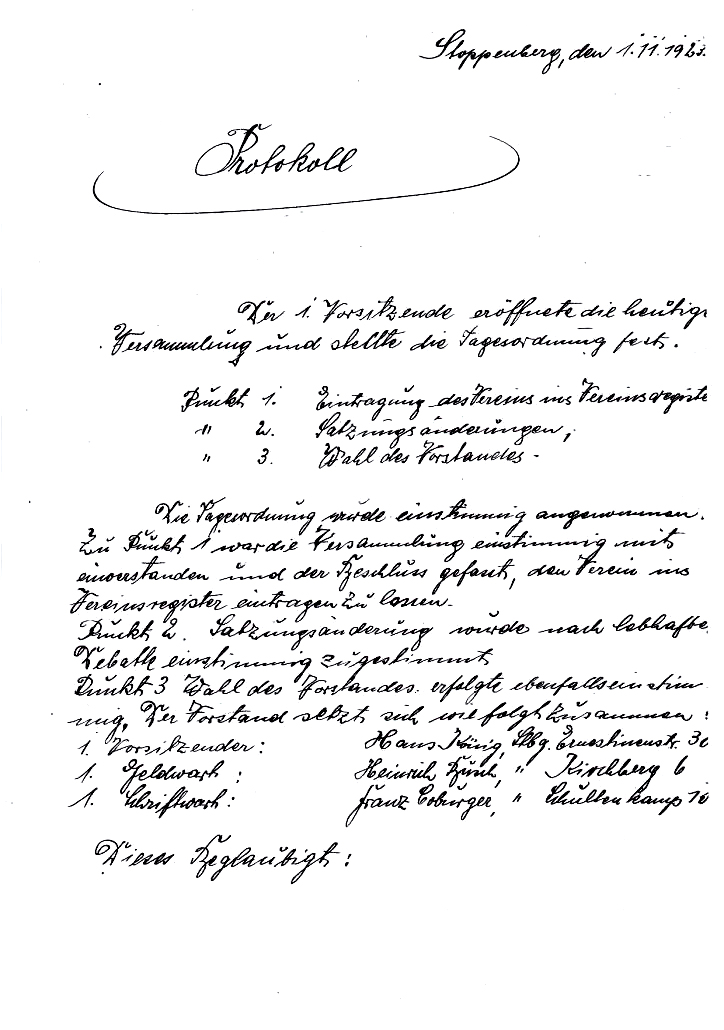 Stoppenberg, den 1.11.192
Protokoll
Der 1. Vorsitzende eröffnete die heutige
Versammlung und stellte die Tagesordnung fest.
Punkt 1. Eintragung des Vereins ins Vereinsregiste
" 2. Satzungsänderungen,
" 3. Wahl des Vorstandes.
Die Tagesordnung wurde einstimmig angenommen.
Zu Punkt 1 war die Versammlung einstimmig mit
einverstanden und der Beschluss gefasst, den Verein ins
Vereinsregister eintragen zu lassen.
Punkt 2. Satzungsänderung wurde nach lebhafte
Debatte einstimmig zugestimmt
Punkt 3 Wahl des Vorstandes. erfolgte ebenfalls einstim
mig. Der Vorstand setzt sich wie folgt zusammen:
1. Vorsitzender: Hans König, Stbg. Ernestinenstr. 30
1. Geldwart: Heinrich " Kirchberg 6
1. Schriftwart: Franz Coburger, " Schultenkamp 10
Dieses Beglaubigt: